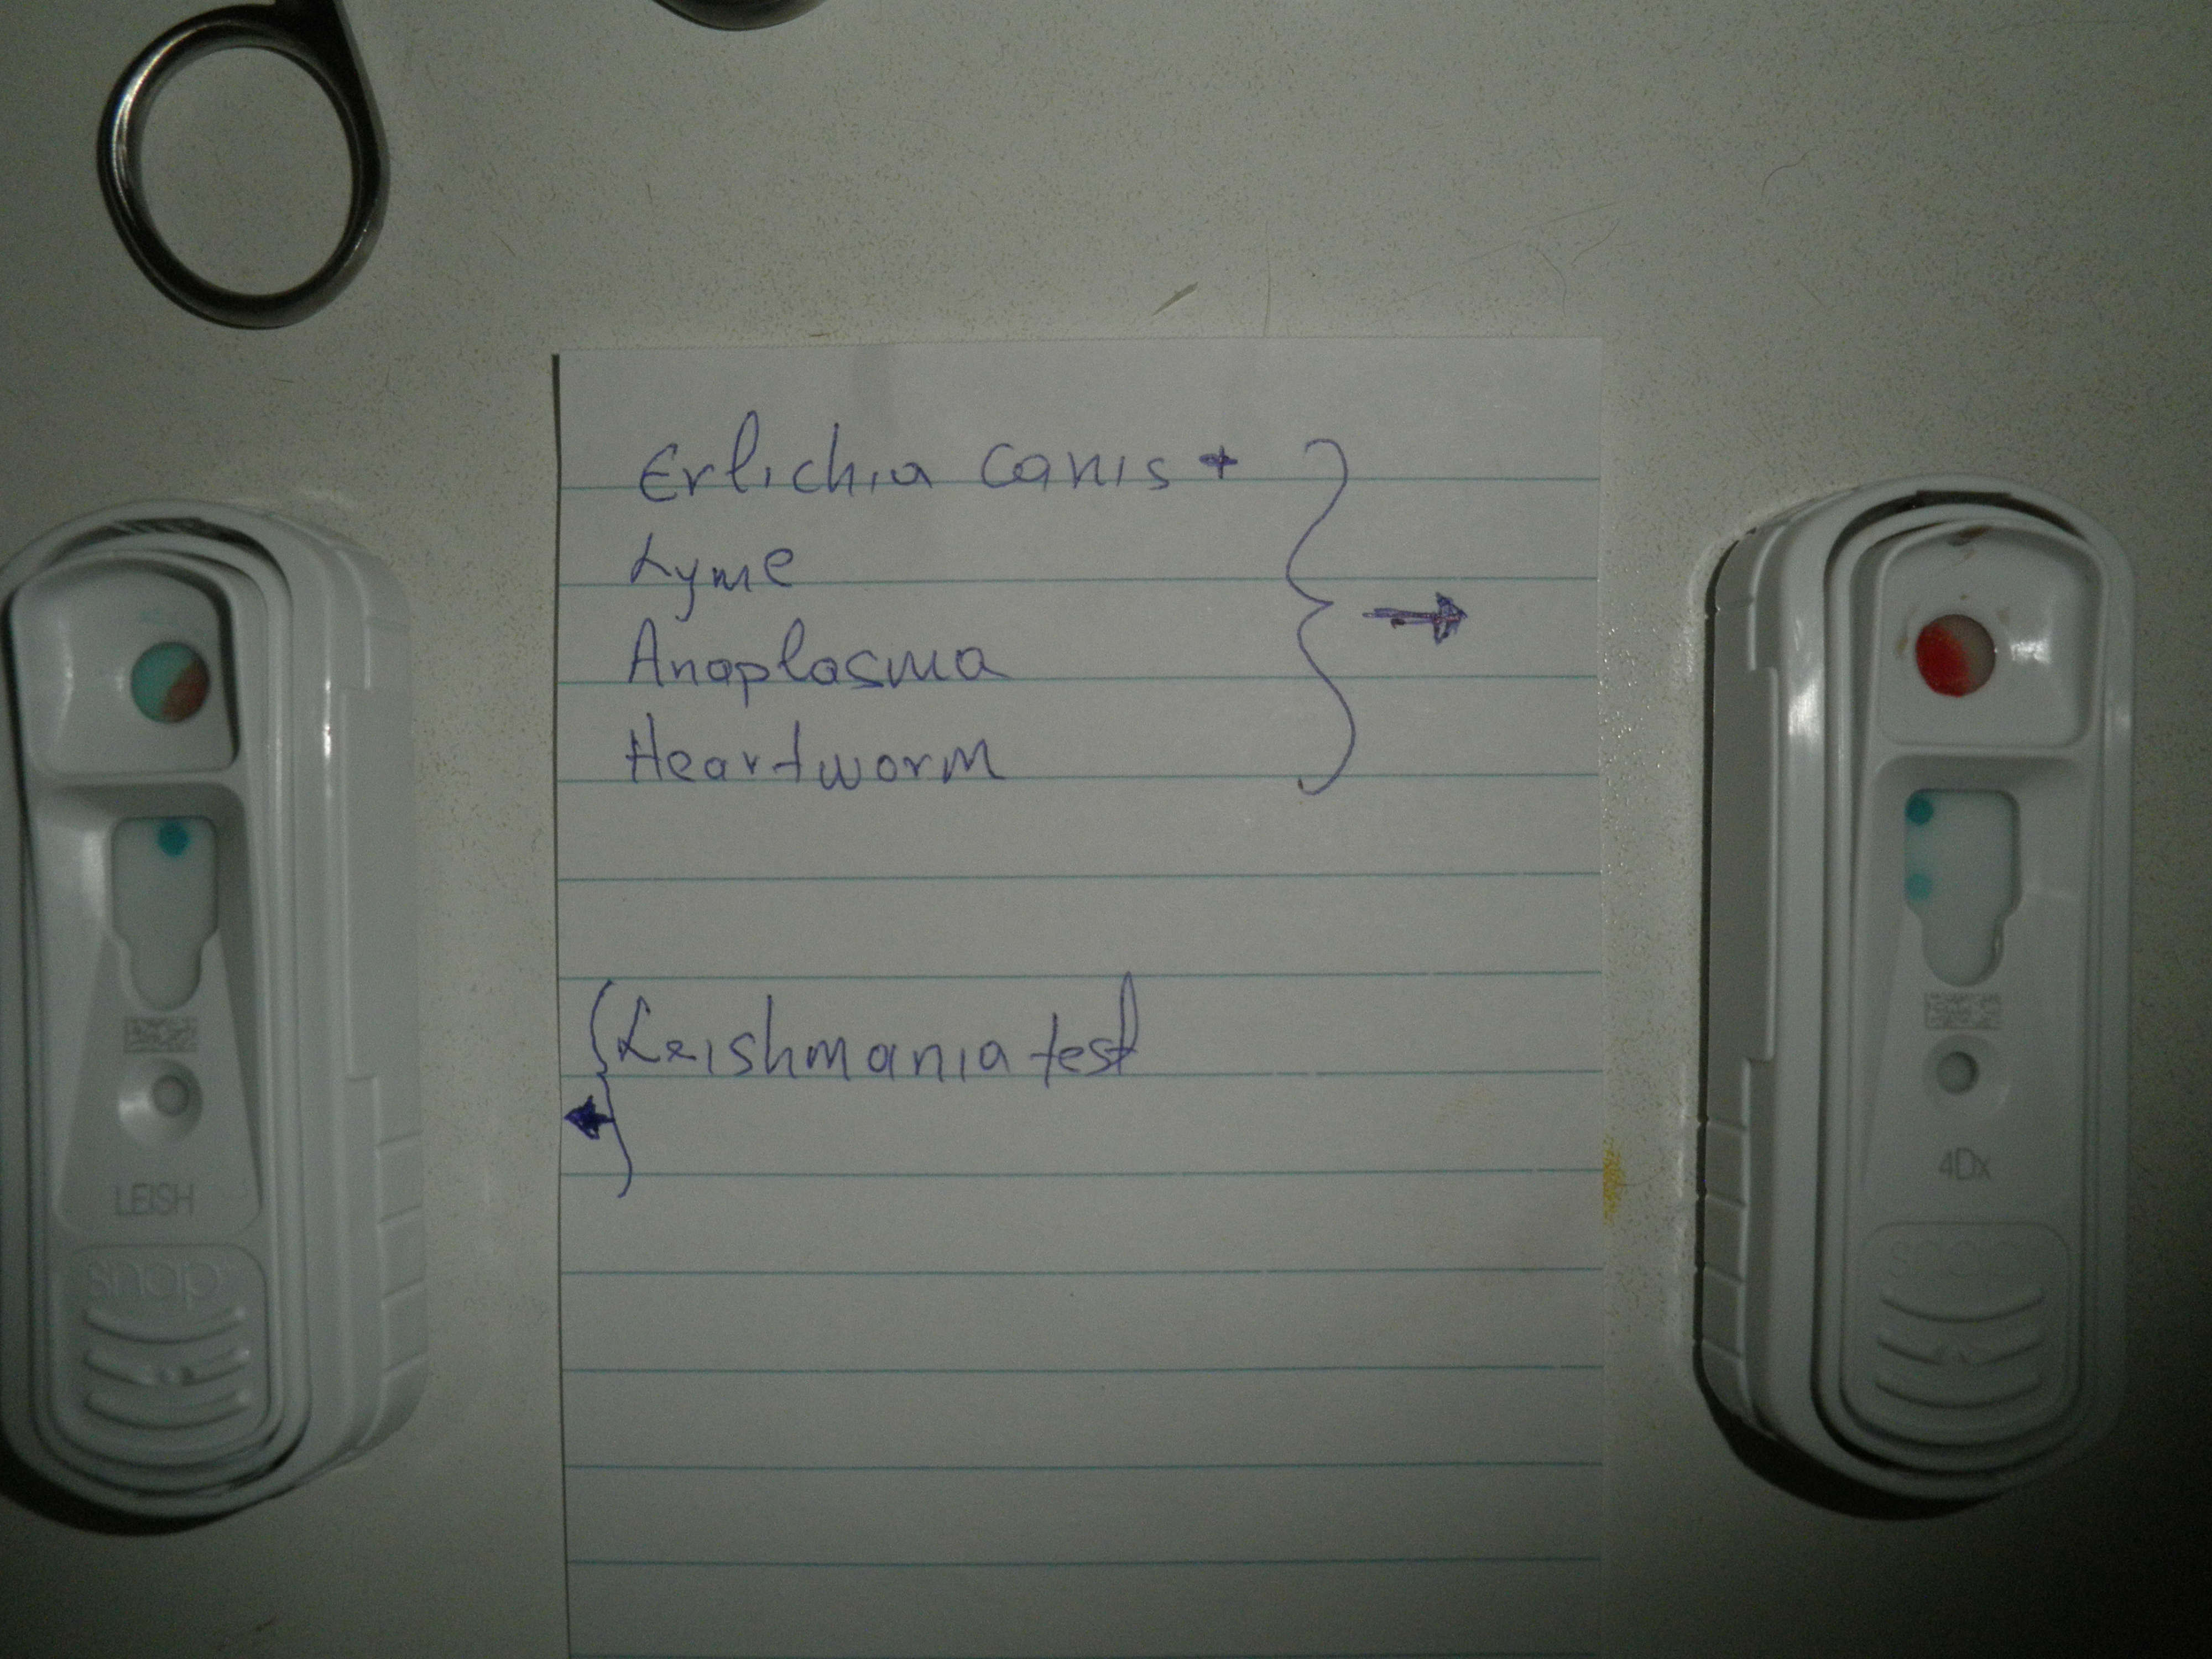 Erlichia canis +
Lyme
Anaplasma
Heartworm
Leishmania test
LEISH
snap
4Dx
snap